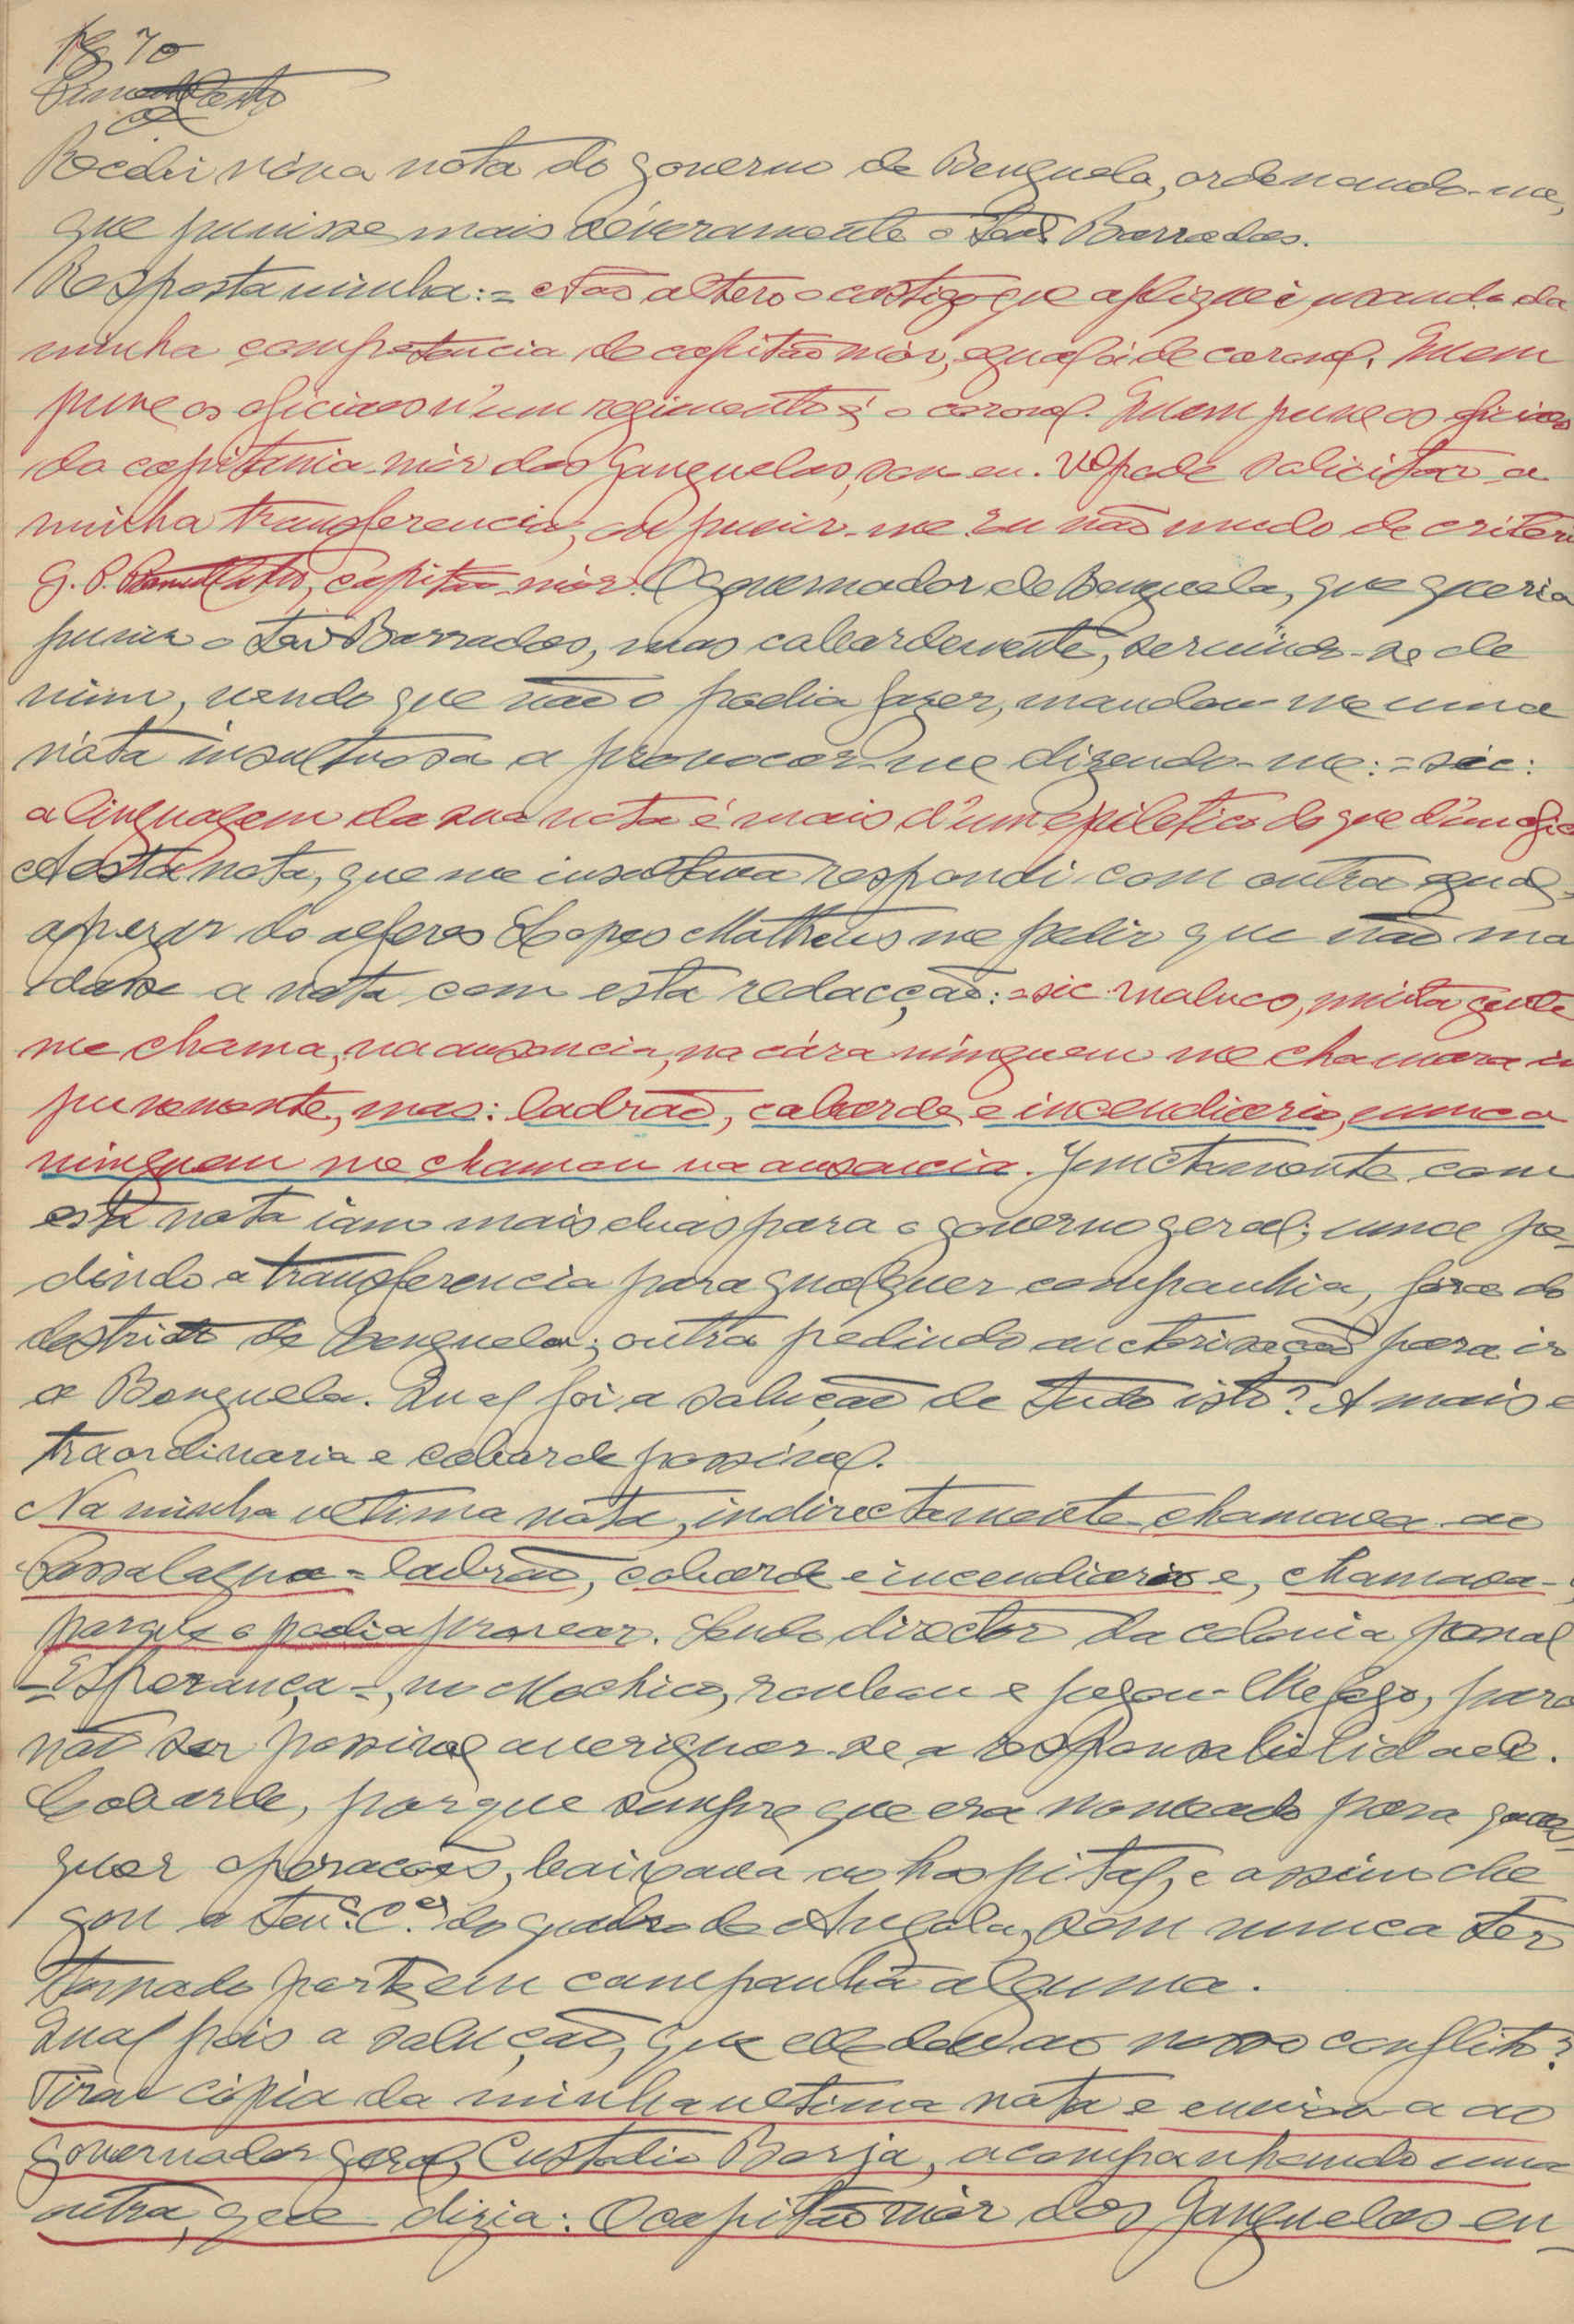 Pg 70
Recebi nova nota do governo de Benguela, ordenando-me,
que punisse mais severamente o tene Barradas.
Resposta minha: = Não altero o castigo que apliquei, usando da
minha competencia de capitão mór, egual á de coronel. Quem
pune os oficiaes n'um regimento é o coronel. Quem pune os oficiaes
da capitania mór dos Ganguelas, sou eu. pode solicitar a
minha transferencia, ou punir-me. Eu não mudo de criterio
G. P. capitão mór. O governador de Benguela, que queria
punir o tene Barradas, mas cobardemente, servindo-se de
mim, vendo que não o podia fazer, mandou-me uma
nota insultuosa a provocar-me dizendo-me: = sic:
a linguagem da sua nota é mais d'um epiletico do que d'um ofici
A esta nota, que me insultava respondi com outra egual-
apezar do alferes Lopes Matheus me pedir que não ma
dasse a nota com esta redacção: = sic maluco, muita gente
me chama, na ausencia, na cára ninguem me chamara im
punemente, mas: ladrão, cobarde e incendiario, nunca
ninguem me chamou na ausencia. Junctamente com
esta nota iam mais duas para o governo geral; uma pe-
dindo a transferencia para qualquer companhia, fóra do
destricto de Benguela; outra pedindo auctorisação para ir
a Benguela. Qual foi a solução de tudo isto? A mais e
traordinaria e cobarde possivel.
Na minha ultima nota, indirectamente chamava ao
Passalaqua = ladrão, cobarde e incendiario e, chamava-
porque o podia provar. Sendo director da colonia penal
- Esperança -, no Mochico, roubou e pegou-lhe fogo, para
não ser possivel averiguar-se a responsabilidade.
Cobarde, porque sempre que era nomeado para quaes
quer operacões, baixava ao hospital, e assim che
gou a tene. C.el do quadro de Angola, sem nunca ter
tomado parte em campanha alguma.
Qual pois a solução, que elle deu ao nosso conflito?
Tirar cópia da minha ultima nota e enviou a ao
governador geral, Custodio Borja, acompanhando uma
outra, que dizia: O capitão mór dos Ganguelas en-